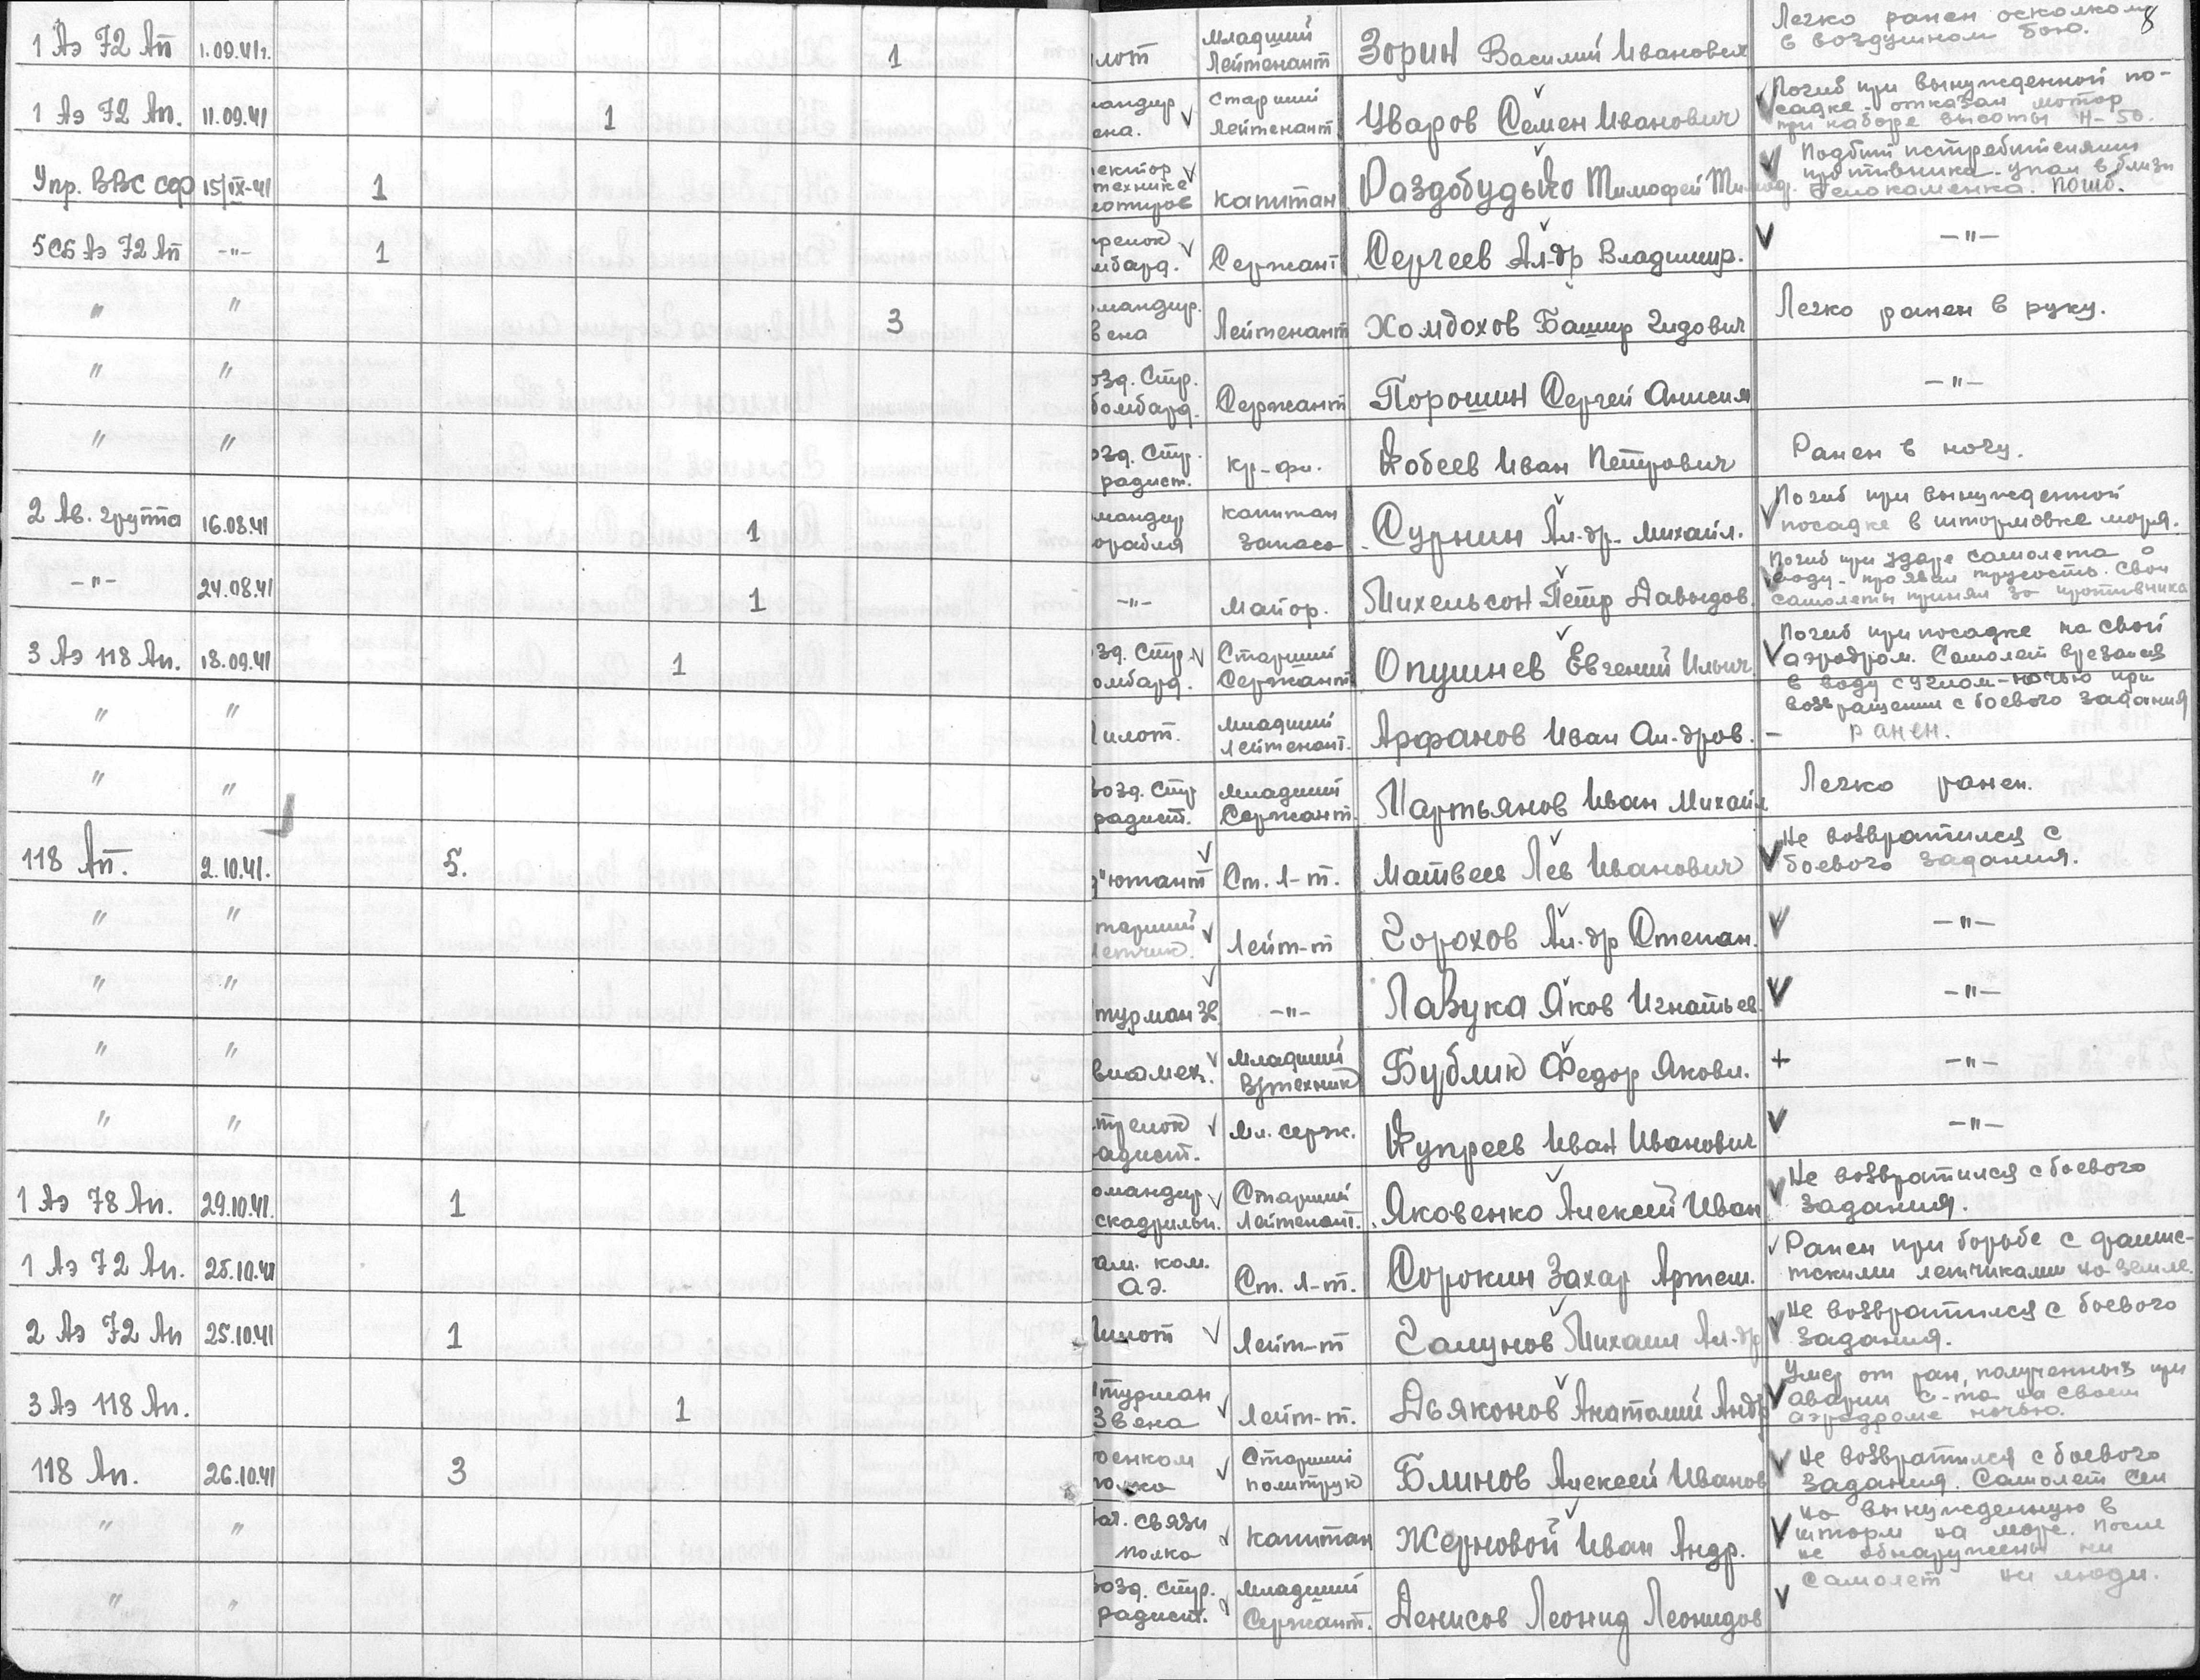 8
1 Аэ 72 Ап 1.09.41г. 1 лот Младший Лейтенант Зорин Василий Иванович Легко ранен осколком
в воздушном бою.
1 Аэ 72 Ап. 11.09.41 1 мандир ена. Старший Лейтенант Уваров Семен Иванович Погиб при вынужденной по-
садке. отказал мотор
при наборе высоты Н-50.
Упр. ВВС СФ 15/IX-41 1 ектор технике капитан Раздобудько Тимофей Тимоф. Подбит истребителями
противника. упал вблизи
Белокаменка. погиб.
5 СБ Аэ 72 Ап -"- 1 релок мбард. Сержант Сергеев Ал-др Владимир. -"-
" " 3 мандир. вена Лейтенант Хомдохов Башир Гидович Легко ранен в руку.
" " озд. Стр. бомбард. Сержант Порошин Сергей -"-
" " озд. Стр. радист. Кр-фл. Кобеев Иван Петрович Ранен в ногу.
2 Ав. группа 16.08.41 1 мандир орабля капитан запаса Сурнин Ал-др. Михайл. Погиб при вынужденной
посадке в штормовке моря.
-"- 24.08.41 1 -"- Майор. Михельсон Петр Давыдов. Погиб при ударе самолета о
воду. проявил трусость. Свои
самолеты принял за противника
3 Аэ 118 Ап. 18.09.41 1 зд. Стр омбард. Старший Сержант Опушнев Евгений Ильич. Погиб при посадке на свой
аэродром. Самолет врезался
в воду с углом - ночью при
возвращении с боевого задания
" " илот. Младший Лейтенант. Арфанов Иван Ал-дров. - ранен.
" " Возд. Стр радист. Младший Сержант. Мартьянов Иван Михайл Легко ранен.
118 Ап. 2.10.41. 5. ютант Ст. Л-т. Матвеев Лев Иванович Не возвратился с
боевого задания.
" " тарший Летчик. Лейт-т Горохов Ал-др Степан. -"-
" " турман Зв. -"- Лазука Яков Игнатьев. -"-
" " виамех. Младший В/техник Бублик Федор Яковл. + -"-
" " трелок адист. Мл. серж. Купреев Иван Иванович -"-
1 Аэ 78 Ап. 29.10.41. 1 омандир скадрильи. Старший Лейтенант. Яковенко Алексей Иван Не возвратился с боевого
задания.
1 Аэ 72 Ап. 25.10.41 ам. ком. АЭ. Ст. Л-т. Сорокин Захар Артем. Ранен при борьбе с фашис-
тскими летчиками на земле.
2 Аэ 72 Ап 25.10.41 1 илот Лейт-т Галунов Михаил Ал-др Не возвратился с боевого
задания.
3 Аэ 118 Ап. 1 турман Звена Лейт-т. Дьяконов Анатолий Андр Умер от ран, полученных при
аварии с-та на своем
аэродроме ночью.
118 Ап. 26.10.41 3 оенком полка Старший политрук Блинов Алексей Иванов Не возвратился с боевого
задания. Самолет сел
" " ач. связи полка капитан Жерновой Иван Андр. на вынужденную в
шторм на море. После
не обнаружены ни
" " Возд. стр. радист. Младший Сержант. Денисов Леонид Леонидов самолет ни люди.